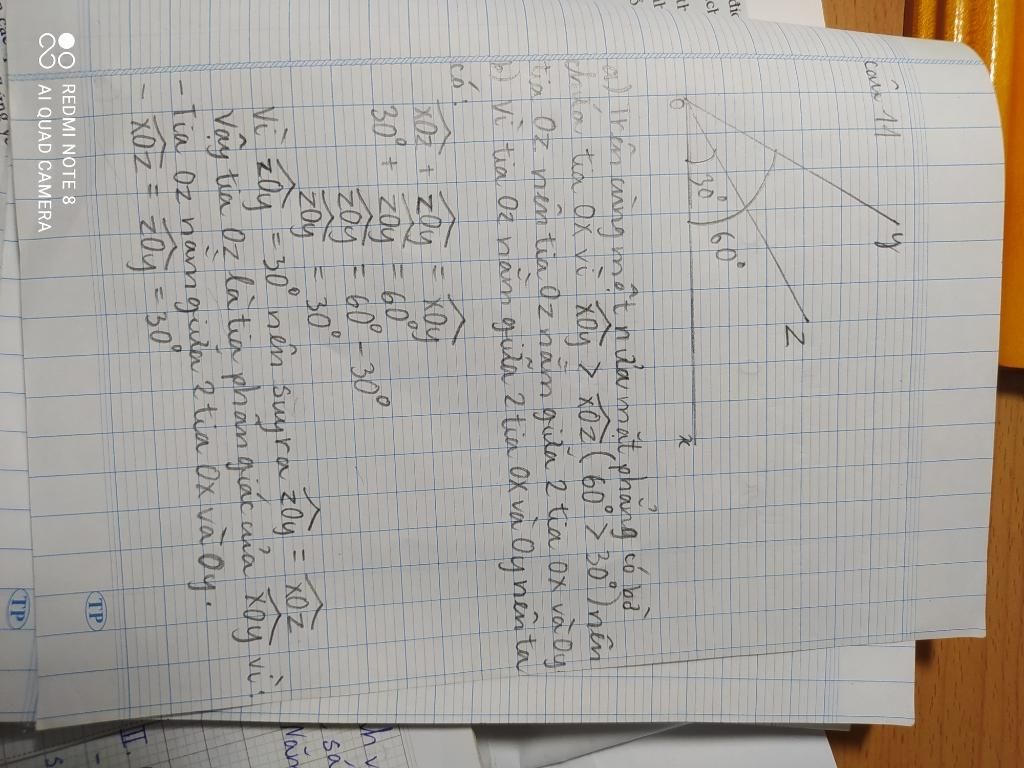 câu 11
y
z
O
30°
60°
x
a) Trên cùng một nửa mặt phẳng có bờ
chứa tia Ox vì xOy > xOz (60° > 30°) nên
tia Oz nên tia Oz nằm giữa 2 tia Ox và Oy
b) Vì tia Oz nằm giữa 2 tia Ox và Oy nên ta
có:
xOz + zOy = xOy
30° + zOy = 60°
zOy = 60° - 30°
zOy = 30°
Vì zOy = 30° nên suy ra zOy = xOz
Vậy tia Oz là tia phan giác của xOy vì:
- Tia Oz nằm giữa 2 tia Ox và Oy.
- xOz = zOy = 30°
TP
TP
REDMI NOTE 8
AI QUAD CAMERA
II.